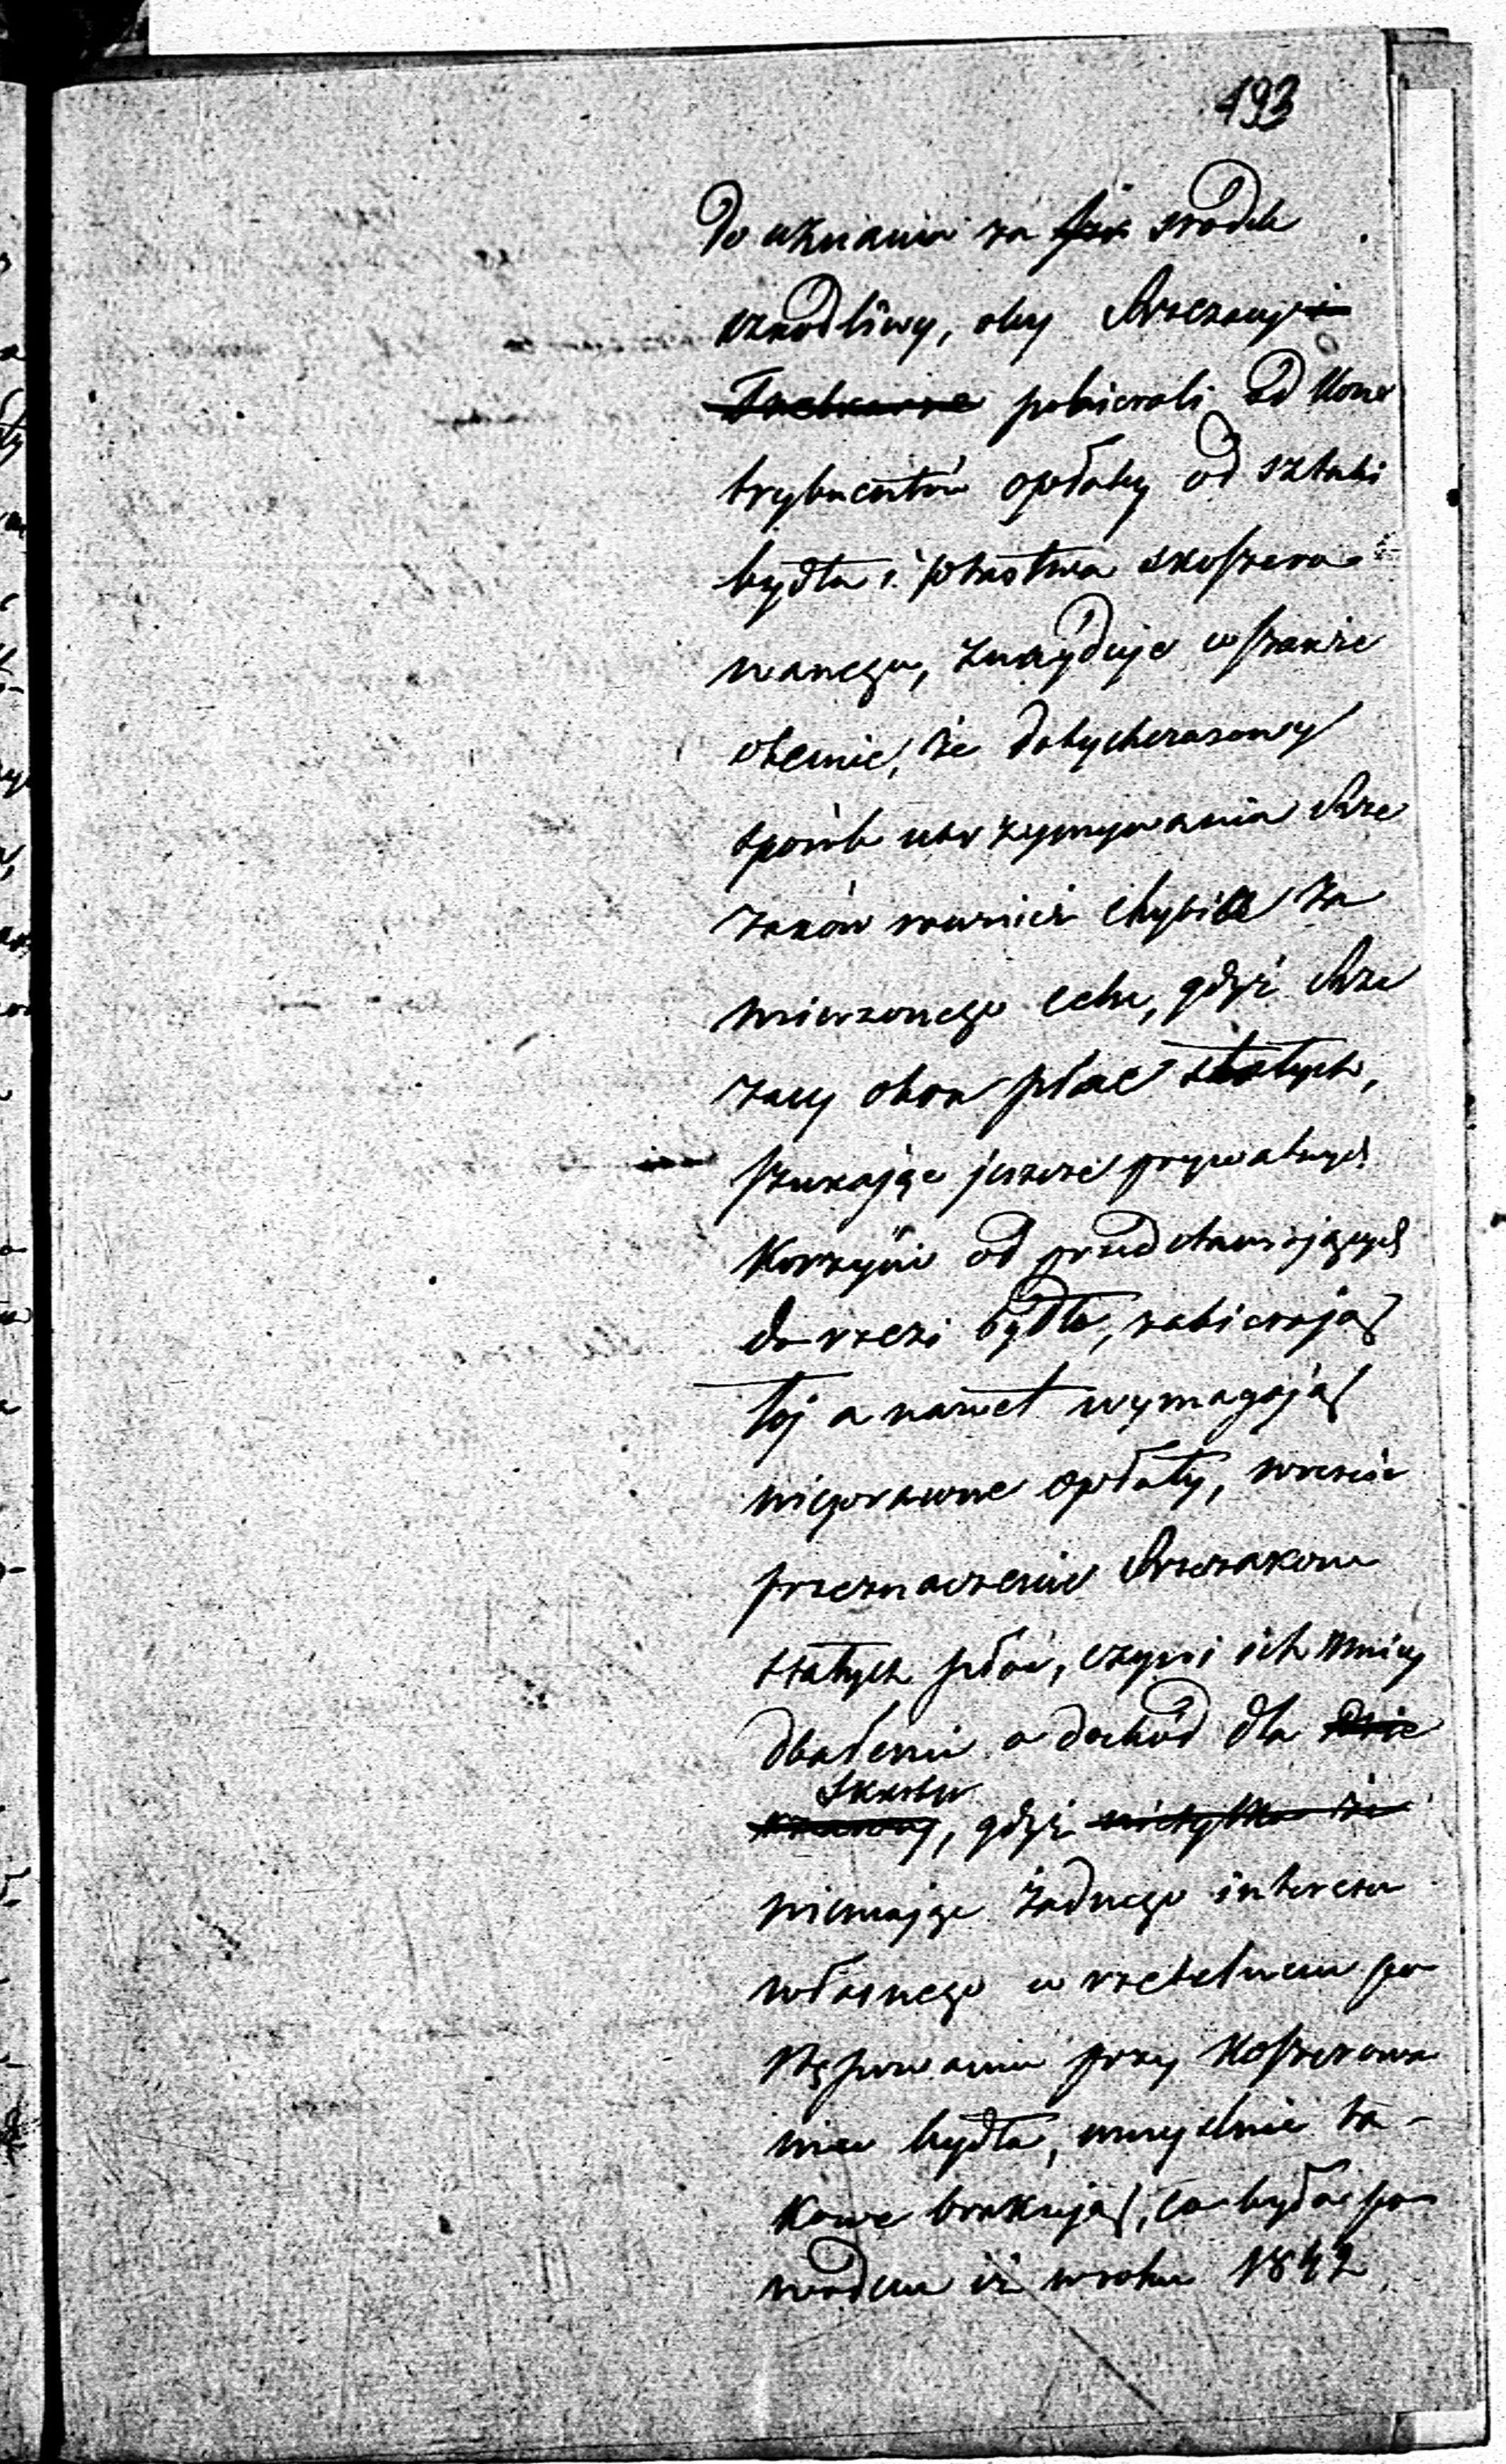 193
do uznania za środek
szkodliwy, aby Rzezacy
pobierali od Kon
trybuentów opłaty od sztuki
bydła i ptastwa skoszero
wanego, znayduje wszakże
obecnie, że dotychczasowy
sposób utrzymywania Rze
zaków również chybia za
mierzonego celu, gdyż Rze
zacy obok płac stałych,
szukając jeszcze prywatnych
Korzyści od przedstawiających
do rzezi bydło, zabierają
toj a nawet wymagają
nieprawne opłaty, wreście
przeznaczenie Rzezakom
stałych płac, czyni ich mniey
dbałemi o dochód dla
Skarbu
, gdyż nietylko że
niemając żadnego interesu
własnego w rzetelnem po
stępowaniu przy Koszerowa
niu bydła, umyślnie ta-
kowe brakują, co było po
wodem iż w roku 1842